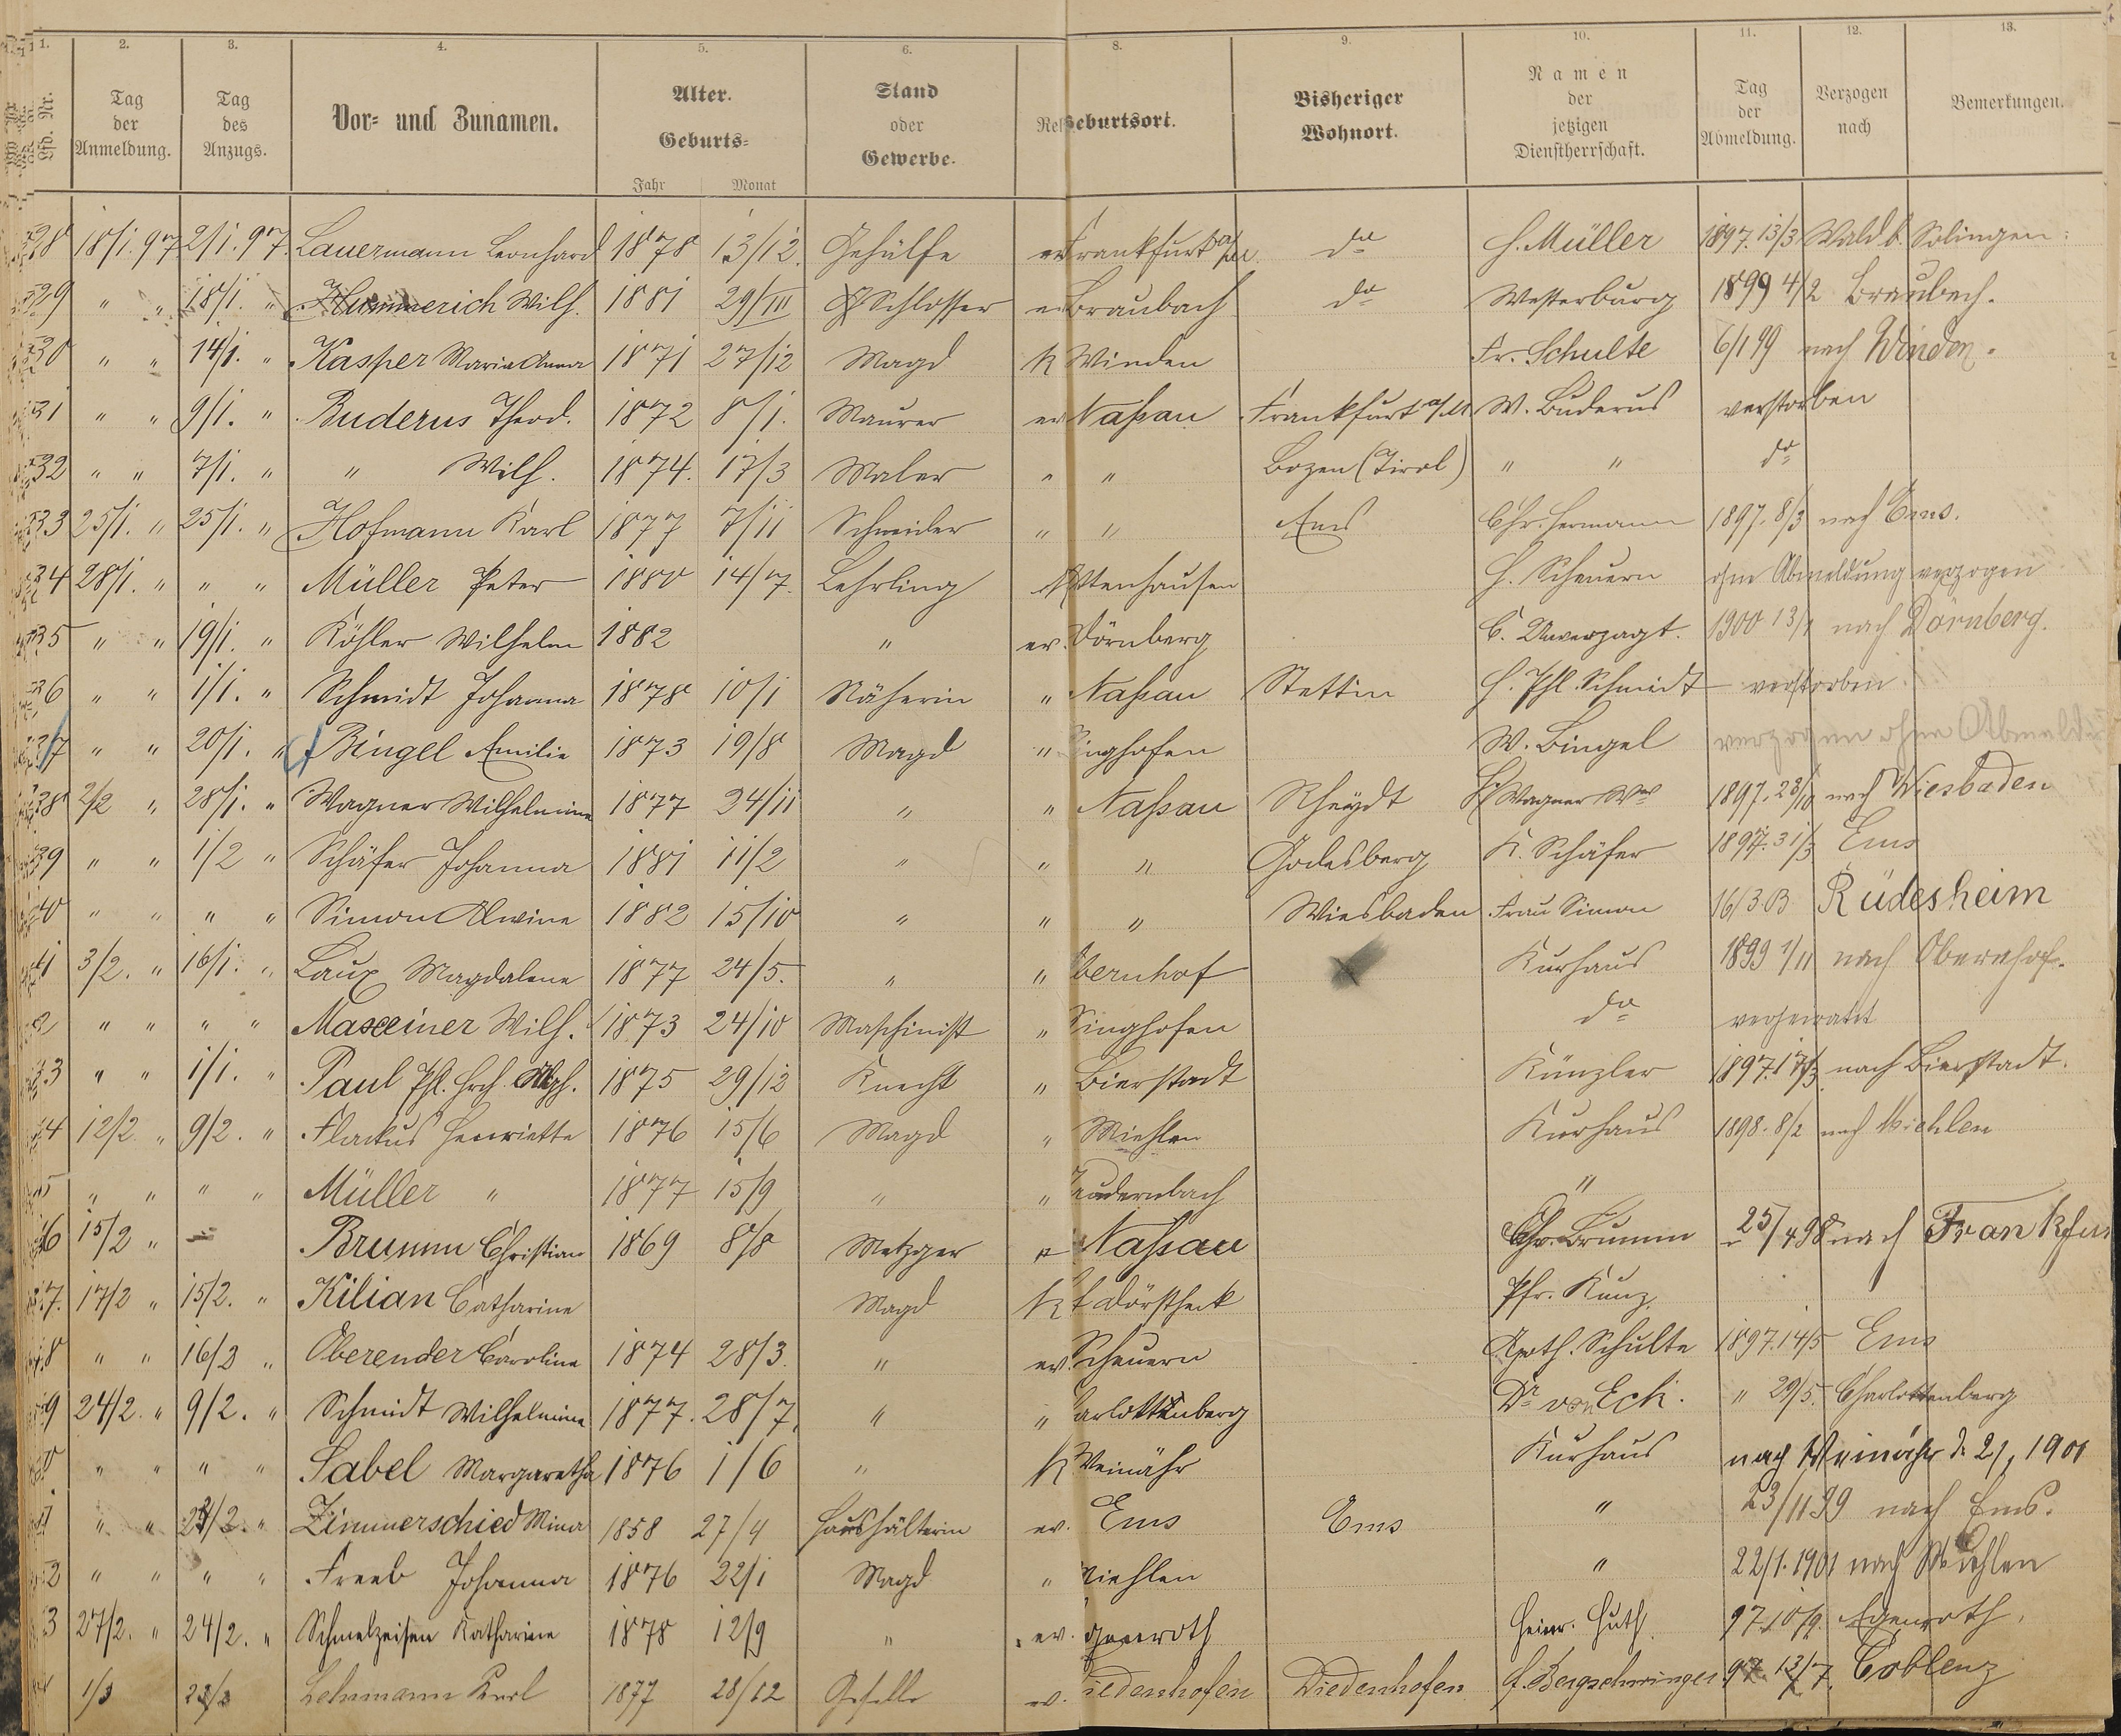 1. 2. 3. 4. 5. 6. 8. 9. 10. 11. 12. 13.
Lfd. Nr. Tag der Anmeldung. Tag des Anzugs. Vor- und Zunamen. Alter. Geburts- Jahr Monat Stand oder Gewerbe. Rel Geburtsort. Bisheriger Wohnort. Namen der jetzigen Dienstherrschaft. Tag der Abmeldung. Verzogen nach Bemerkungen.
28 18/1. 97. 2/1. 97. Lauermann Leonhard 1878 13/12. Gehülfe ev Frankfurt a/M. do H. Müller 1897. 13/3 Wald b. Solingen
29 " " 18/1. " Hummerich Wilh. 1881 29/III Schlosser ev Braubach do Westerburg 1899 4/2 Braubach.
30 " " 14/1. " Kasper Maria Anna 1871 27/12 Magd K Winden Fr. Schulte 6/1 99 nach Winden.
31 " " 9/1. " Buderus Theod. 1872 8/1. Maurer ev Naßau Frankfurt a/M W. Buderus verstorben
32 " " 7/1. " " Wilh. 1874. 17/3 Maler " " Bozen (Tirol) " " do
33 25/1. " 25/1. " Hofmann Karl 1877 7/11 Schneider " " Ems Chr. Hermann 1897. 8/3 nach Ems.
34 28/1. " " " Müller Peter 1880 14/7. Lehrling Attenhausen H. Scheuern ohne Abmeldung verzogen
35 " " 19/1. " Köhler Wilhelm 1882 " ev. Dörnberg C. Unverzagt. 1900 13/1 nach Dörnberg.
36 " " 1/1. " Schmidt Johanna 1878 10/1 Näherin " Naßau Stettin H. Phl. Schmidt verstorben
37 " " 20/1. " Bingel Emilie 1873 19/8 Magd " inghofen W. Bingel verzogen ohne Abmeld
38 2/2 " 28/1. " Wagner Wilhelmine 1877 24/11 " " Naßau Rheydt Wagner Ww 1897. 23/10 nach Wiesbaden
39 " " 1/2 " Schäfer Johanna 1881 11/2 " " " Godesberg K. Schäfer 1897. 31/3 Ems
40 " " " " Simon Alwine 1882 15/10 " " " Wiesbaden Frau Simon 16/3. Rüdesheim
41 3/2. " 16/1. " Laux Magdalene 1877 24/5. " " bernhof Kurhaus 1899 1/11 nach Obernhof.
2 " " " " Maxeiner Wilh. 1873 24/10 Maschinist " Singhofen do verheiratet
43 " " 1/1. " Paul Phl. Hrch. 1875 29/12 Knecht " Bierstadt Künzler 1897. 17/3. nach Bierstadt.
44 12/2. " 9/2. " Flackus Henriette 1876 15/6 Magd " Miehlen Kurhaus 1898. 8/2 nach Miehlen
5 " " " " Müller " 1877 15/9 " " "
46 15/2 " Brumm Christian 1869 8/8 Metzger Naßau Chr. Brumm 25/4 98 nach Frankfur
47. 17/2 " 15/2. " Kilian Catharine Magd K Dörscheck Pfr. Kunz
48 " " 16/2 " Oberender Caroline 1874 28/3. " ev. Scheuern Apoth. Schulte 1897. 14/5 Ems
49 24/2. " 9/2. " Schmidt Wilhelmine 1877. 28/7. " " arlottenberg Dr von Eck. " 29/5. Charlottenberg
" " " " Sabel Margaretha 1876 1/6 " K Weinähr Kurhaus nach Weinähr d. 2/1 1901
" " 2/2. " Zimmerschied Mina 1858 27/4 Haushälterin ev. Ems Ems " 23/11 99 nach Ems.
2 " " " " Freeb Johanna 1876 22/1 Magd " Miehlen " 22/1. 1901 nach Miehlen
3 27/2. " 24/2. " Schmelzeisen Katharine 1878 12/9 " ev. genroth Heinr. Huth. 97. 10/9. Egenroth.
1/3 Lehmann Karl 1877 28/12 Geselle ev. iedenhofen Diedenhofen 97 12/7. Coblenz